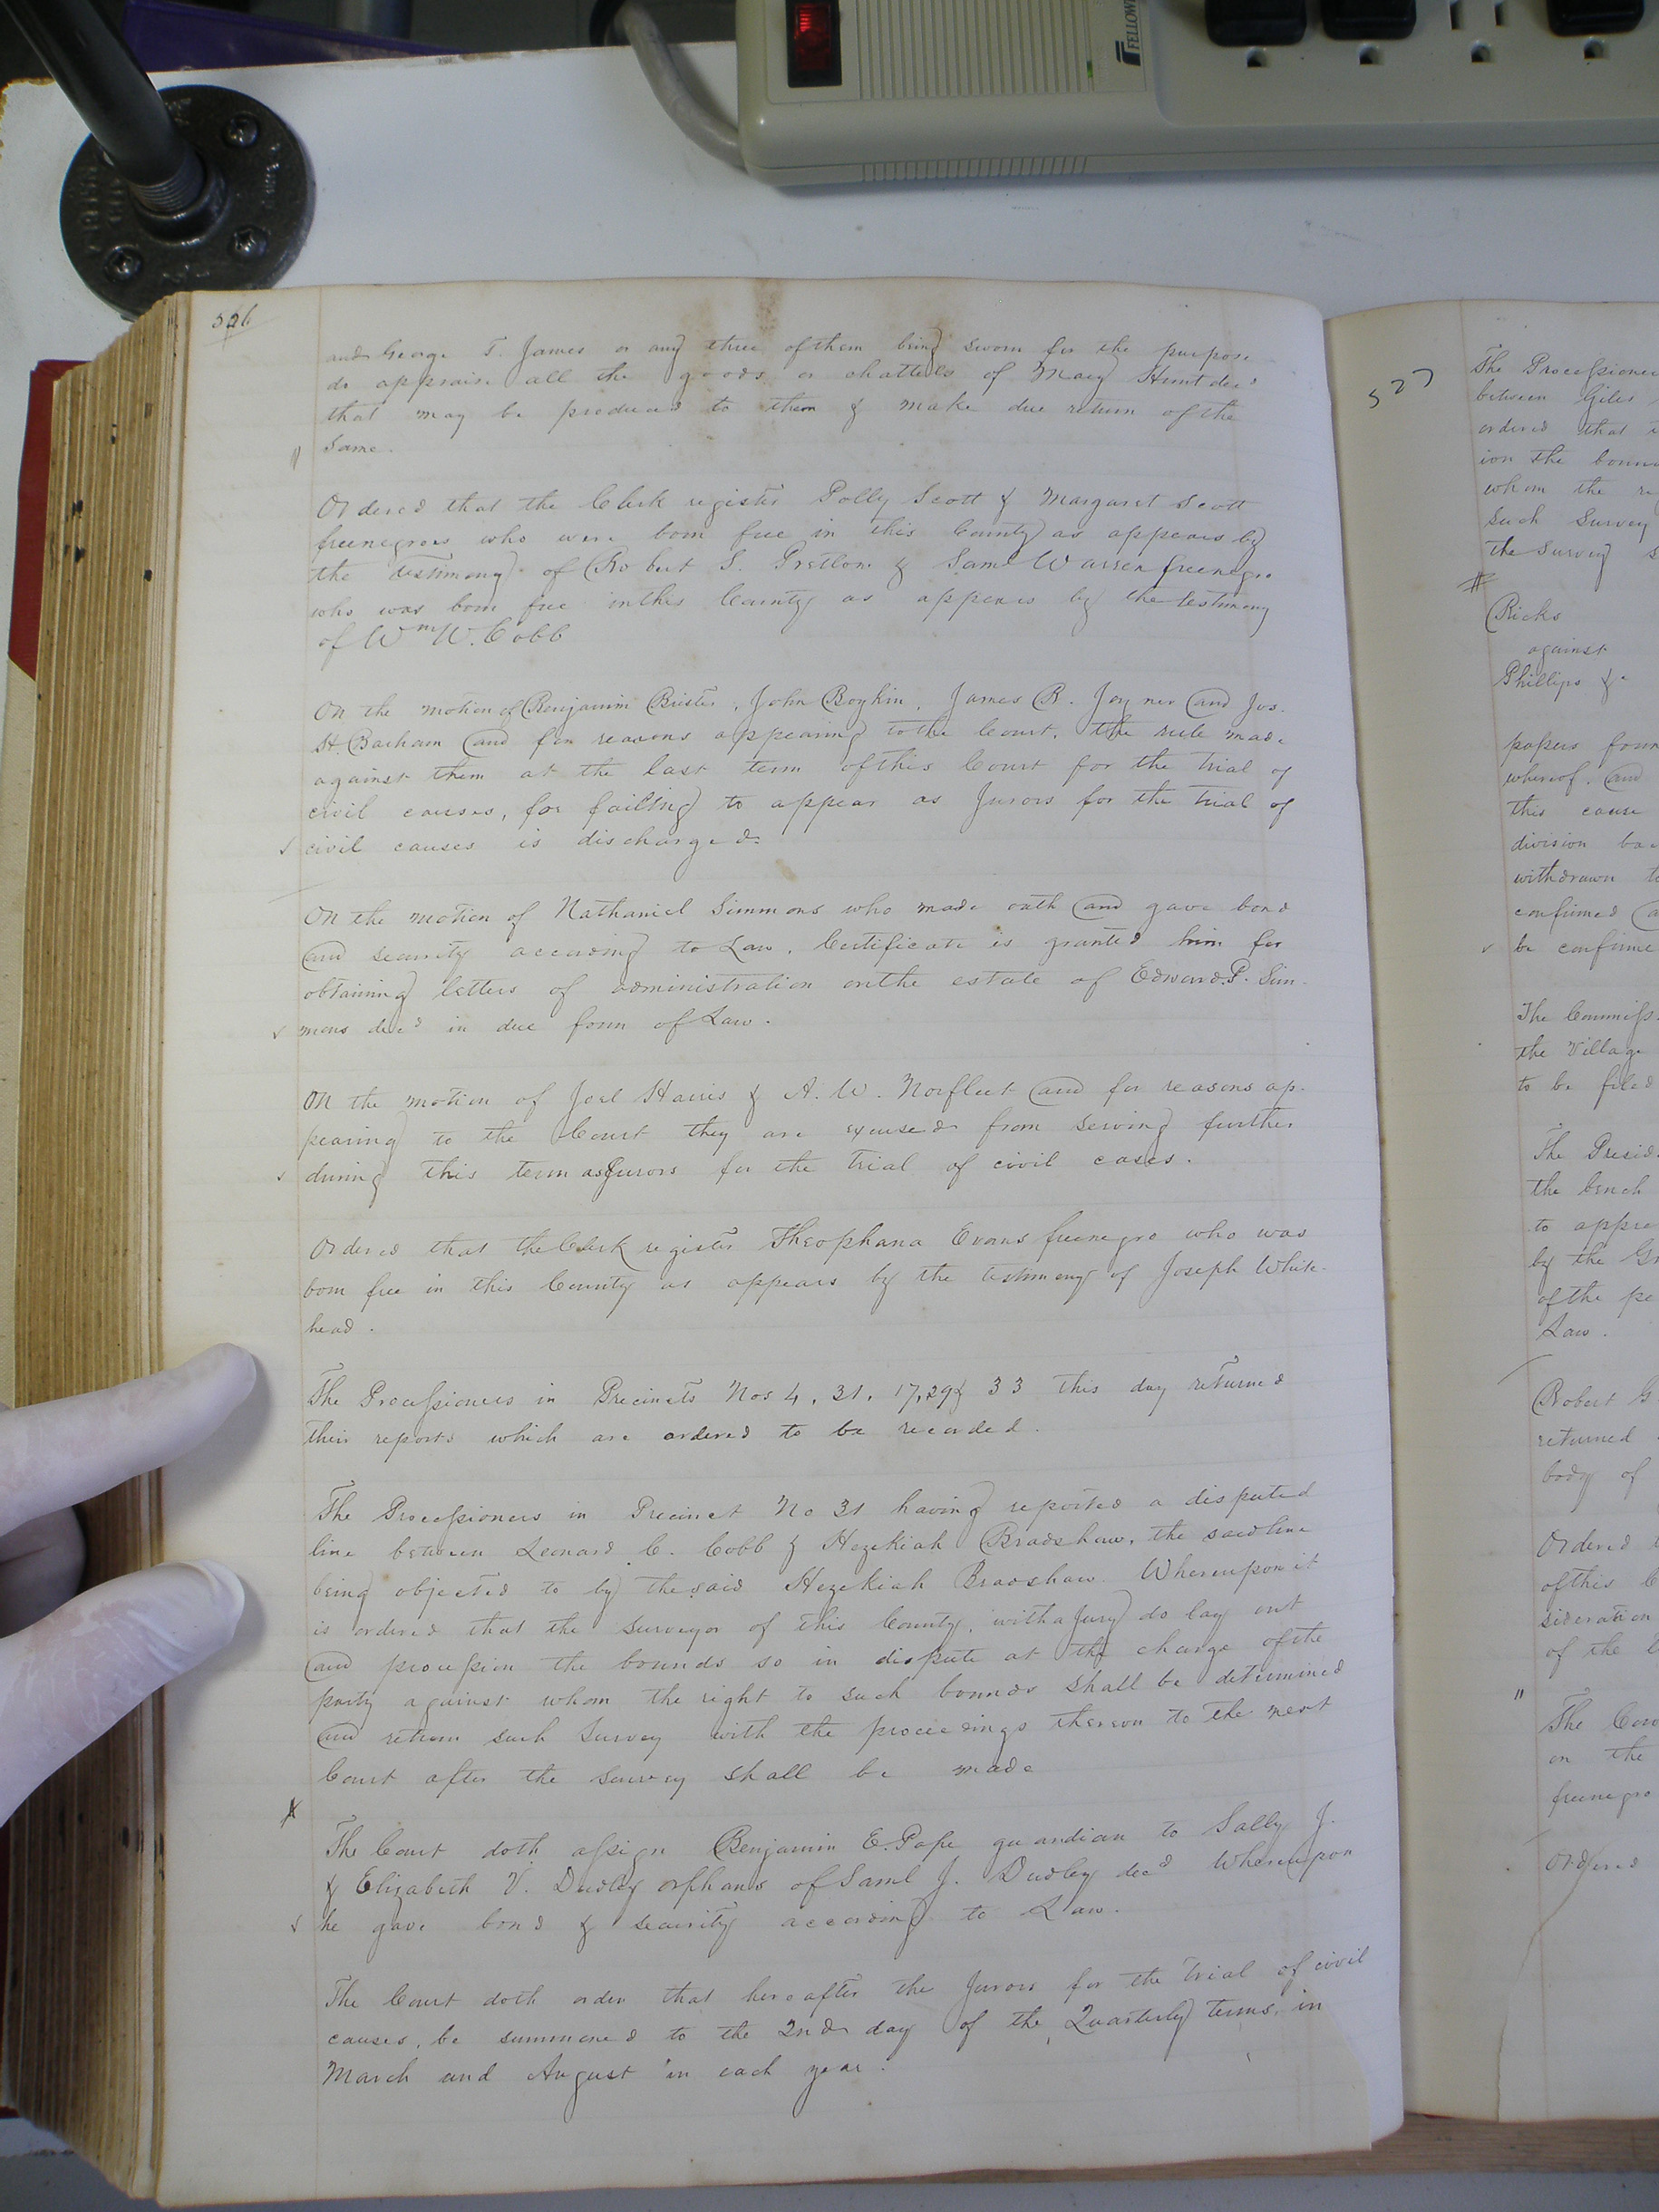 FELLOW
526
and George T. James or any three of them being sworn for the purpose
do appraise all the goods or chattells of Mary Hunt decd
that may be produced to them & make due return of the
Same.
Ordered that the Clerk register Polly Scott & Margaret Scott
freenegroes who were born free in this County as appears by
the testimony of Robert S. & Saml Warren freenegro
who was born free in this County as appears by the testimony
of Wm W. Cobb
On the motion of Benjamin Brister, John Boykin, James B. Joyner and Jos.
H. Barham and for reasons appearing to the Court, the rule made
against them at the last term of this Court for the trial of
civil causes, for failing to appear as Jurors for the trial of
civil causes is discharged.
On the motion of Nathaniel Simmons who made oath and gave bond
and security according to Law, Certificate is granted him for
obtaining letters of administration on the estate of Edward P. Sim-
mons decd in due form of Law.
On the motion of Joel Harris & A. W. Norfleet and for reasons ap-
pearing to the Court they are excused from serving further
during this term as Jurors for the trial of civil cases.
Ordered that the Clerk register Theophana Evans freenegro who was
born free in this County as appears by the testimony of Joseph White-
head.
The Processioners in Precincts Nos 4, 31, 17, 29 & 33 this day returned
their reports which are ordered to be recorded.
The Processioners in Precinct No 31 having reported a disputed
line between Leonard C. Cobb & Hezekiah Bradshaw, the said line
being objected to by the said Hezekiah Bradshaw. Whereupon it
is ordered that the Surveyor of this County, with a Jury do lay out
and procession the bounds so in dispute at the charge of the
party against whom the right to such bounds shall be determined
and return such Survey with the proceedings thereon to the next
Court after the survey shall be made
The Court doth assign Benjamin E. Pope guardian to Sally J.
& Elizabeth V. Dudley orphans of Saml J. Dudley decd Whereupon
he gave bond & security according to Law.
The Court doth order that hereafter the Jurors for the trial of civil
causes, be summoned to the 2nd day of the Quarterly terms, in
March and August in each year.
527
The Processioner
between Giles
ordered that
ion the boun
whom the
Such Survey
the Survey
Ricks
against
Phillips &c
papers foun
whereof. and
this cause
division
withdrawn
confirmed
be confirme
The Commiss
the Village
to be filed
The Presid
the bench
to appre
by the Gr
of the pe
Law.
Robert G
returned
body of
Ordered
of this C
sideration
of the
The
on the
freenegro
Ordered